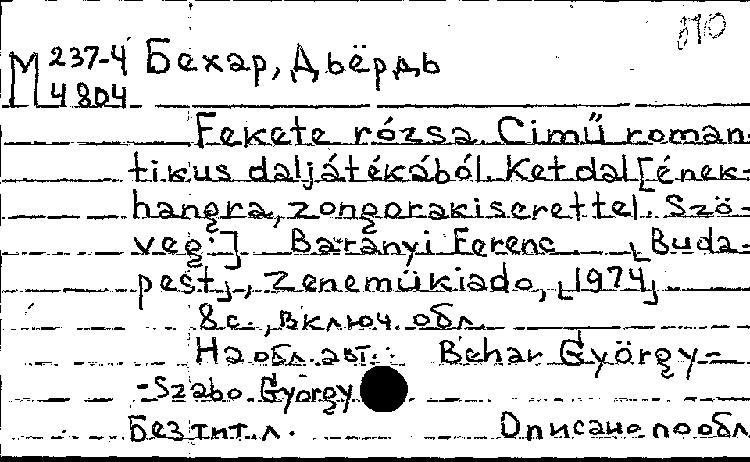 810
М 237-4 Бехар, Дьёрдь
4804
Fekete rózsa. Cimű roman-
tikus daljátékából. Ket dal [ének-
hangra, zongorakiserettel. Szö-
veg:] Baranyi Ferenc. [Buda-
pest], Zeneműkiado, [1974]
8 с., включ. обл.
На обл. авт.: Behar György-
-Szabo György
Без тит. л. Описано по обл